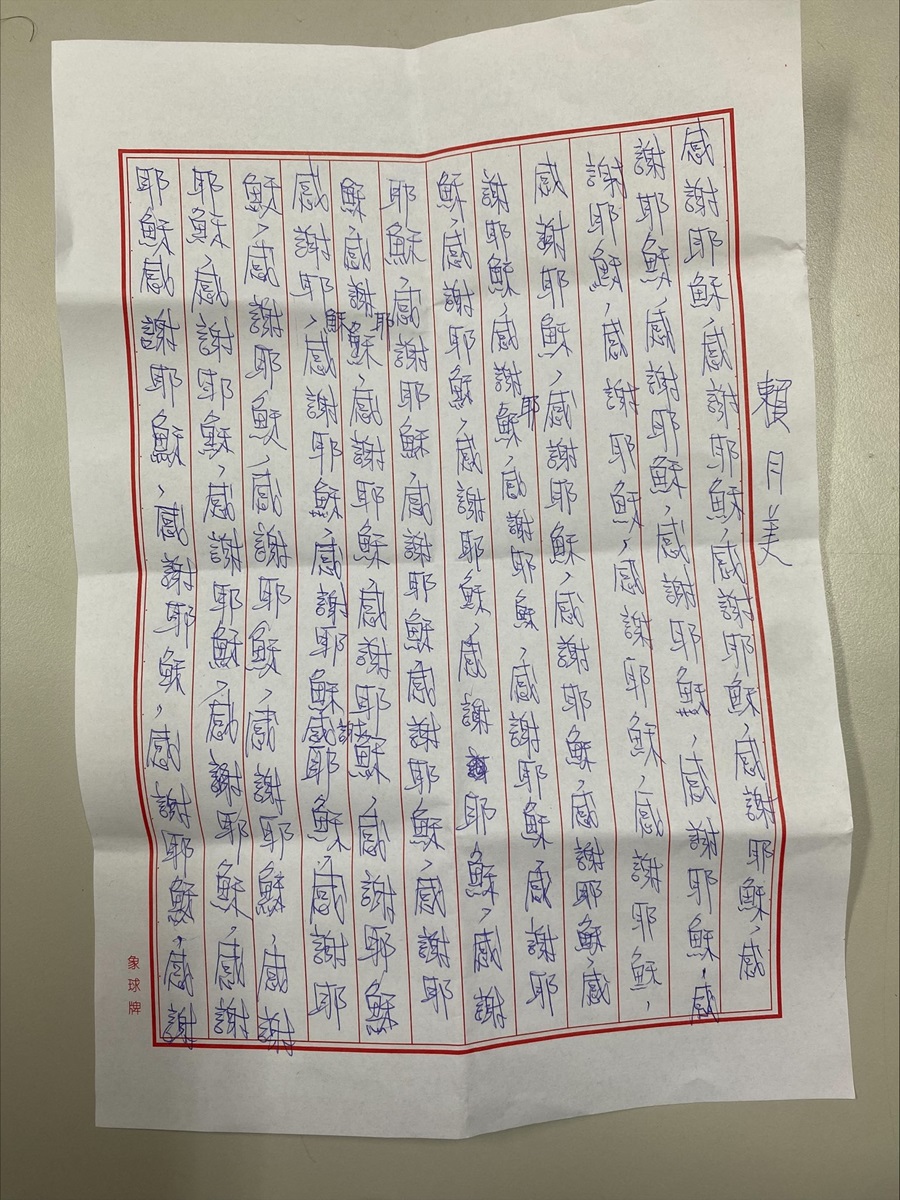 賴月美
感謝耶穌,感謝耶穌,感謝耶穌,感謝耶穌,感
謝耶穌,感謝耶穌,感謝耶穌,感謝耶穌,感
謝耶穌,感謝耶穌,感謝耶穌,感謝耶穌,
感謝耶穌,感謝耶穌,感謝耶穌,感謝耶穌,感
謝耶穌,感謝耶穌,感謝耶穌,感謝耶穌感謝耶
穌,感謝耶穌,感謝耶穌,感謝耶穌,感謝
耶穌,感謝耶穌,感謝耶穌感謝耶穌,感謝耶
穌,感謝耶穌,感謝耶穌,感謝耶穌感謝耶穌
感謝耶穌,感謝耶穌,感謝耶穌感謝耶穌,感謝耶
穌,感謝耶穌,感謝耶穌,感謝耶穌,感謝
耶穌,感謝耶穌,感謝耶穌,感謝耶穌,感謝
耶穌感謝耶穌,感謝耶穌,感謝耶穌,感謝
象球牌